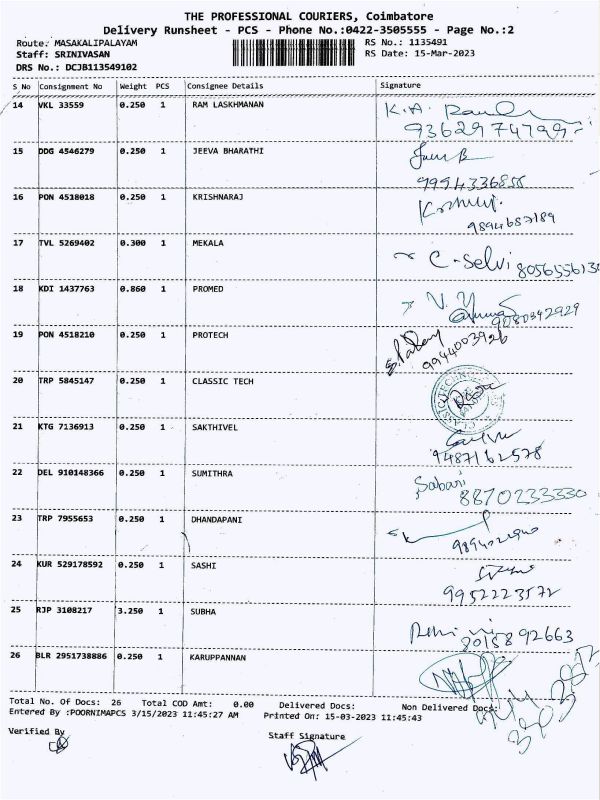 THE PROFESSIONAL COURIERS, Coimbatore
Delivery Runsheet - PCS - Phone No.:0422-3505555 - Page No.:2
Route: MASAKALIPALAYAM
Staff: SRINIVASAN
DRS No.: DCJB113549102
RS No.: 1135491
RS Date: 15-Mar-2023
S No Consignment No Weight PCS Consignee Details Signature
14 VKL 33559 0.250 1 RAM LASKHMANAN K.A.
15 DDG 4546279 0.250 1 JEEVA BHARATHI
9994336858
16 PON 4518018 0.250 1 KRISHNARAJ
9894687189
17 TVL 5269402 0.300 1 MEKALA C-selvi
18 KDI 1437763 0.860 1 PROMED
9080342929
19 PON 4518210 0.250 1 PROTECH
9944003926
20 TRP 5845147 0.250 1 CLASSIC TECH
21 KTG 7136913 0.250 1 SAKTHIVEL
9487162578
22 DEL 910148366 0.250 1 SUMITHRA Sabari
8870233330
23 TRP 7955653 0.250 1 DHANDAPANI
24 KUR 529178592 0.250 1 SASHI
9952223572
25 RJP 3108217 3.250 1 SUBHA
8015892663
26 BLR 2951738886 0.250 1 KARUPPANNAN
Total No. Of Docs: 26 Total COD Amt: 0.00 Delivered Docs: Non Delivered Docs:
Entered By :POORNIMAPCS 3/15/2023 11:45:27 AM Printed On: 15-03-2023 11:45:43
Verified By
Staff Signature